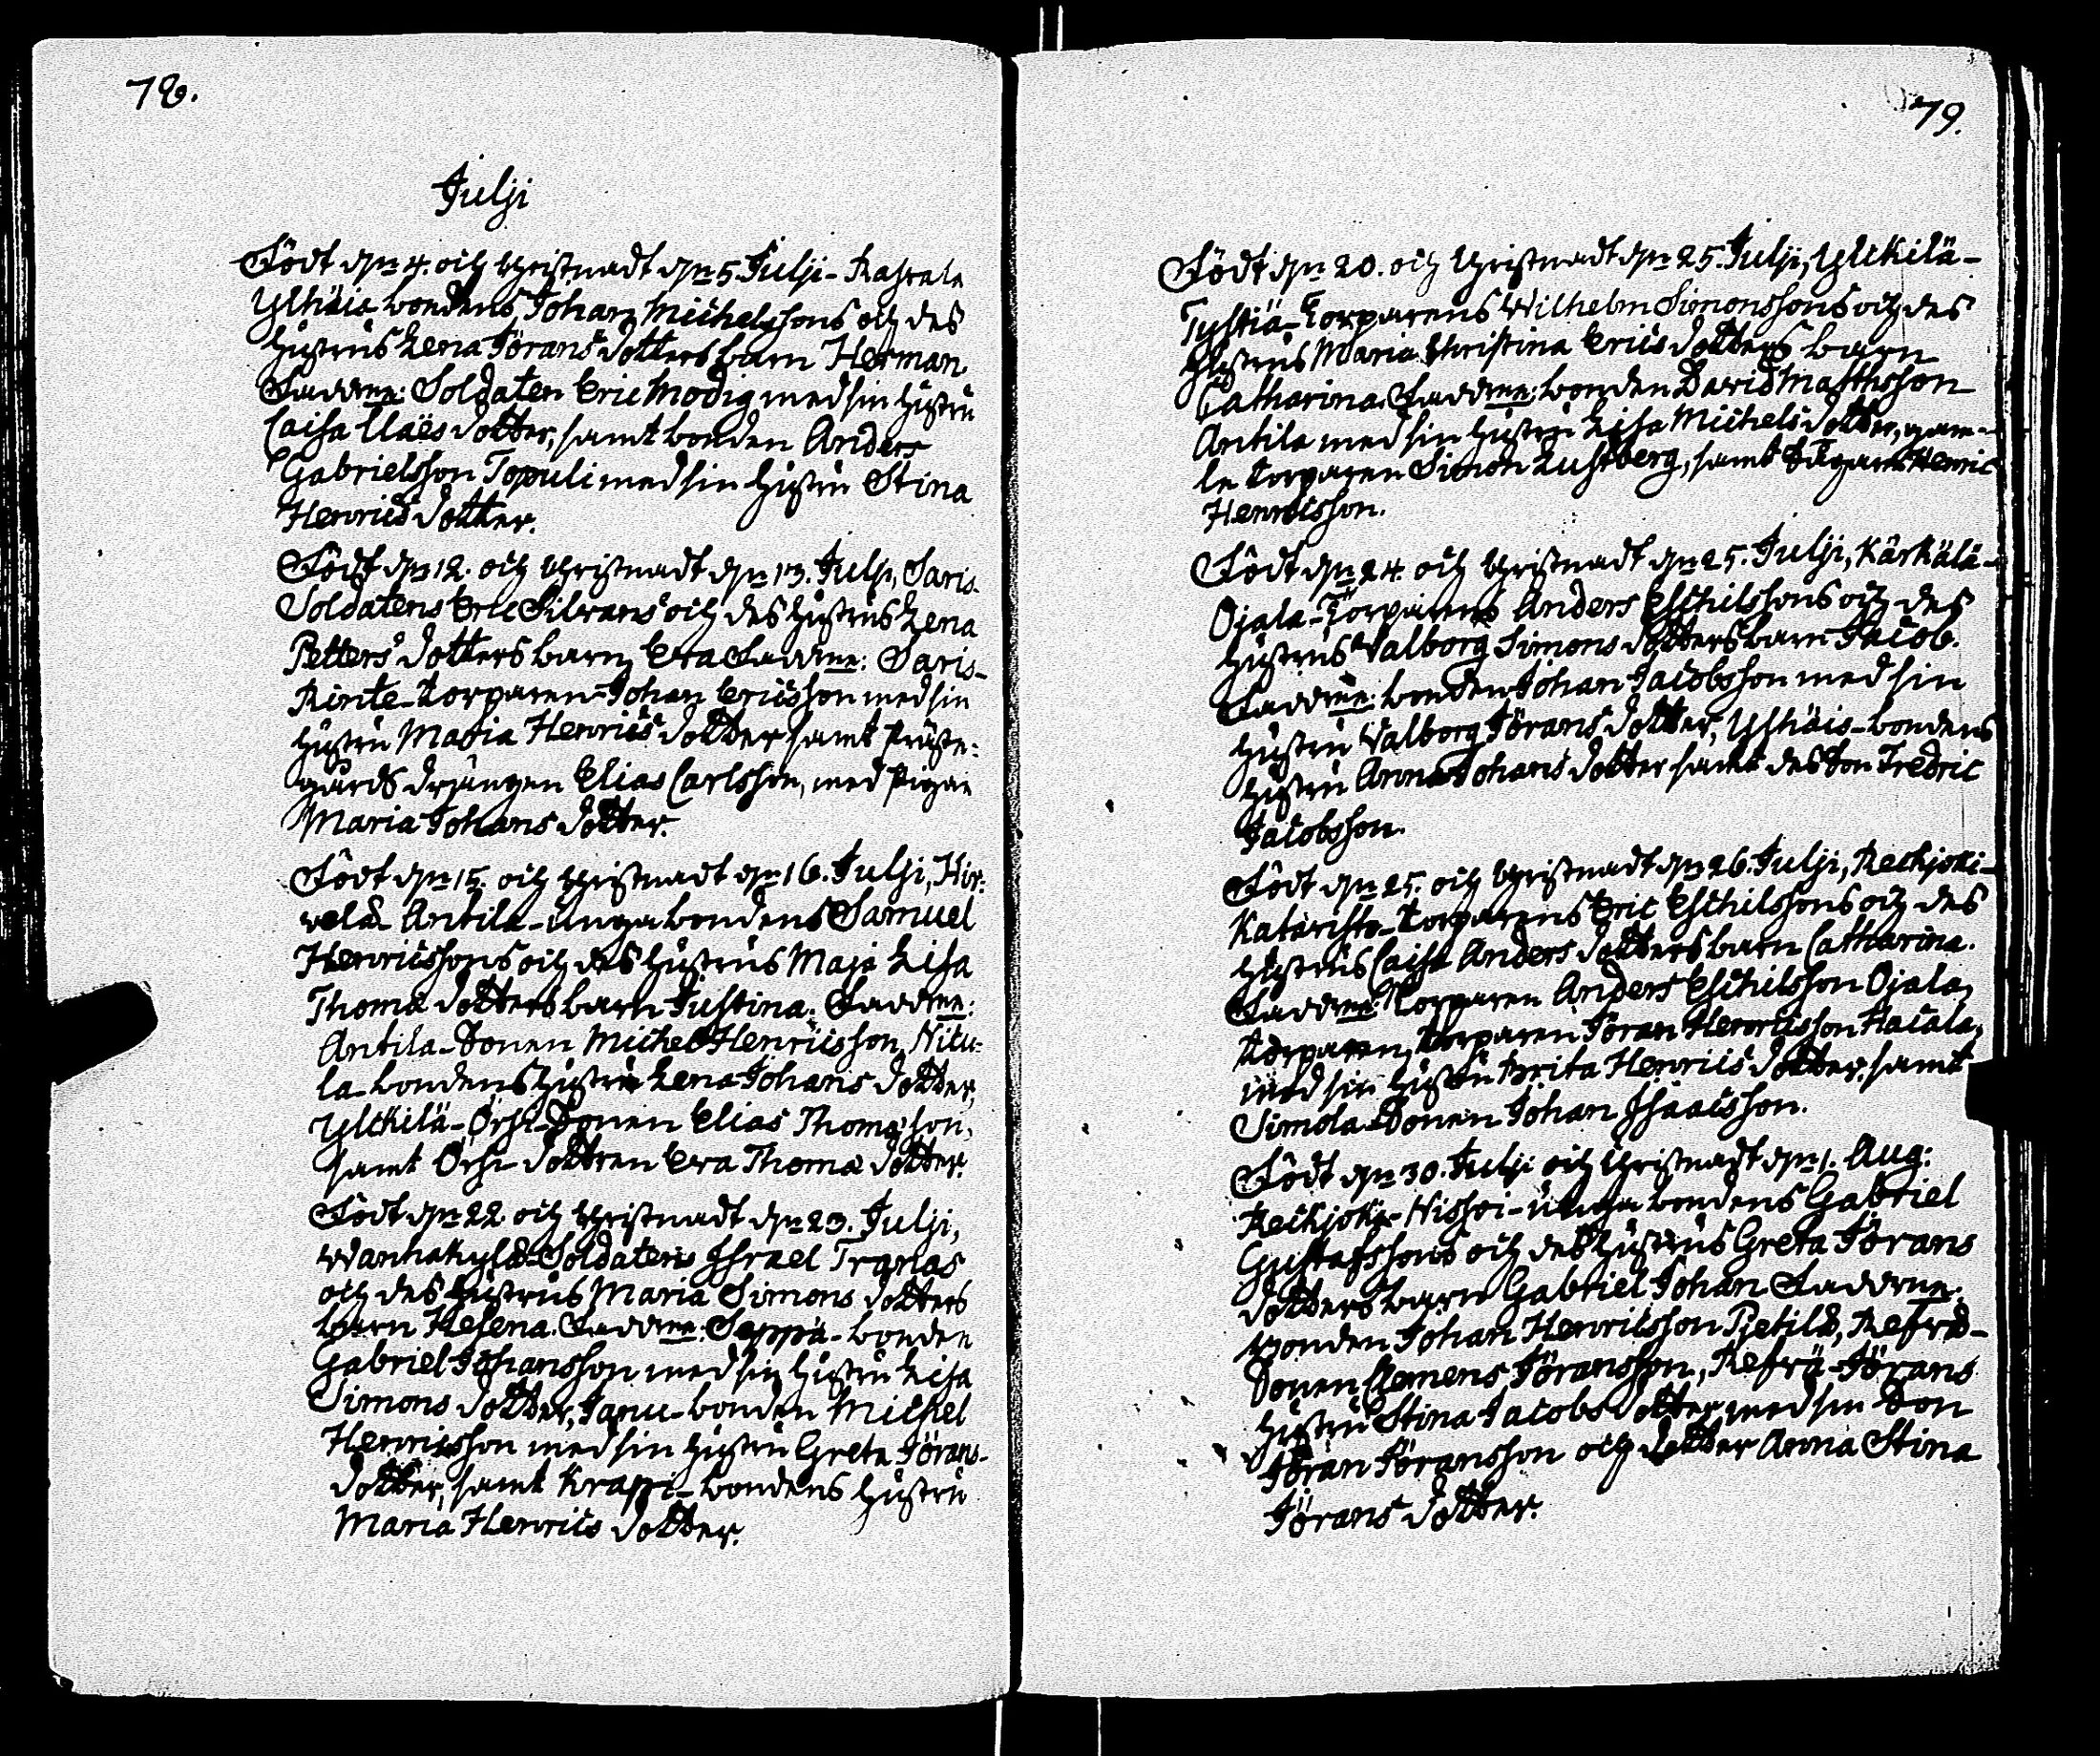 78.
Julji
Födt dn 4. och Christnadt dn 5. Julji - Rahvala
Ylhäis bondens Johan Michelssons och des
hustrus Lena Jörans dotters barn Herman.
Faddrne: Soldaten Eric Modig med sin hustru
Caisa Claësdotter, samt bonden Anders
Gabrielsson Topuli med sin hustru Stina
Henrics dotter.
Födt dn 12. och Christnadt dn 13. Julji, Saris-
Soldatens Eric Silvrans och des hustrus Lena
Petters dotters barn Eva Faddrne: Saris-
Rinte-torparen Johan Ericsson med sin
hustru Maria Henrics dotter samt Präste-
gårds drängen Elias Carlsson, med Pigan
Maria Johans dotter.
Födt dn 15. och Christnadt dn 16. Julji, Hir-
velä Antila-unga bondens Samuel
Henricssons och des hustrus Maja Lisa
Thomæ dotters barn Justina. Faddrne:
Antila-Sonen Michel Henricsson, Nitu-
la-bondens hustru Lena Johans dotter,
Ylckilä-Orhi-Sonen Elias Thomæson,
samt Orhi dottren Eva Thomæ dotter.
Födt dn 22. och Christnadt dn 23. Julji,
Wanhakylä-Soldatens Israel Tranas
och des hustrus Maria Simons dotters
barn Helena. Faddrne: Seppä-bonden
Gabriel Johansson med sin hustru Lisa
Simons dotter, Tapu-bonden Michel
Henricsson med sin hustru Greta Jörans-
dotter, samt Krapi-bondens hustru
Maria Henrics dotter.
79.
Födt dn 20. och Christnadt dn 25. Julji, Ylckilä-
Tystiä-Torparens Wilhelm Simonssons och des
hustrus Maria Christina Erics dotters barn
Catharina. Faddrne: bonden David Matthsson
Antila med sin hustru Lisa Michels dotter, gam-
le torparen Simon Lustberg, samt Henric
Henricsson.
Födt dn 24. och Christnadt dn 25. Julji, Kärkälä-
Ojala-Torparens Anders Eschilssons och des
hustrus Valborg Simons dotters barn Jacob.
Faddrne: bonden Johan Jacobsson med sin
hustru Valborg Jörans dotter, Ylhäis-bondens
hustru Anna Johans dotter samt des Son Fredric
Jacobsson.
Födt dn 25. och Christnadt dn 26. Julji, Reckijoki-
Katäristo-torparens Eric Eschilssons och des
hustrus Caisa Anders dotters barn Catharina.
Faddrne: Torparen Anders Eschilsson Ojala,
torparen, torparen Jöran Henricsson Hacala,
med sin hustru Brita Henrics dotter, samt
Simola-Sonen Johan Isaacsson.
Födt dn 30. Julji och Christnadt dn 1. Aug:
Reckijoki-Nissoi-unga bondens Gabriel
Gustafssons och des hustrus Greta Jörans
dotters barn Gabriel Johan Faddrne:
bonden Johan Henricsson Pietilä, Refrä-
Sonen Clemens Jöransson, Refrä-Jörans
hustru Stina Jacobs dotter med sin Son
Jöran Jöransson och dotter Anna Stina
Jörans dotter.